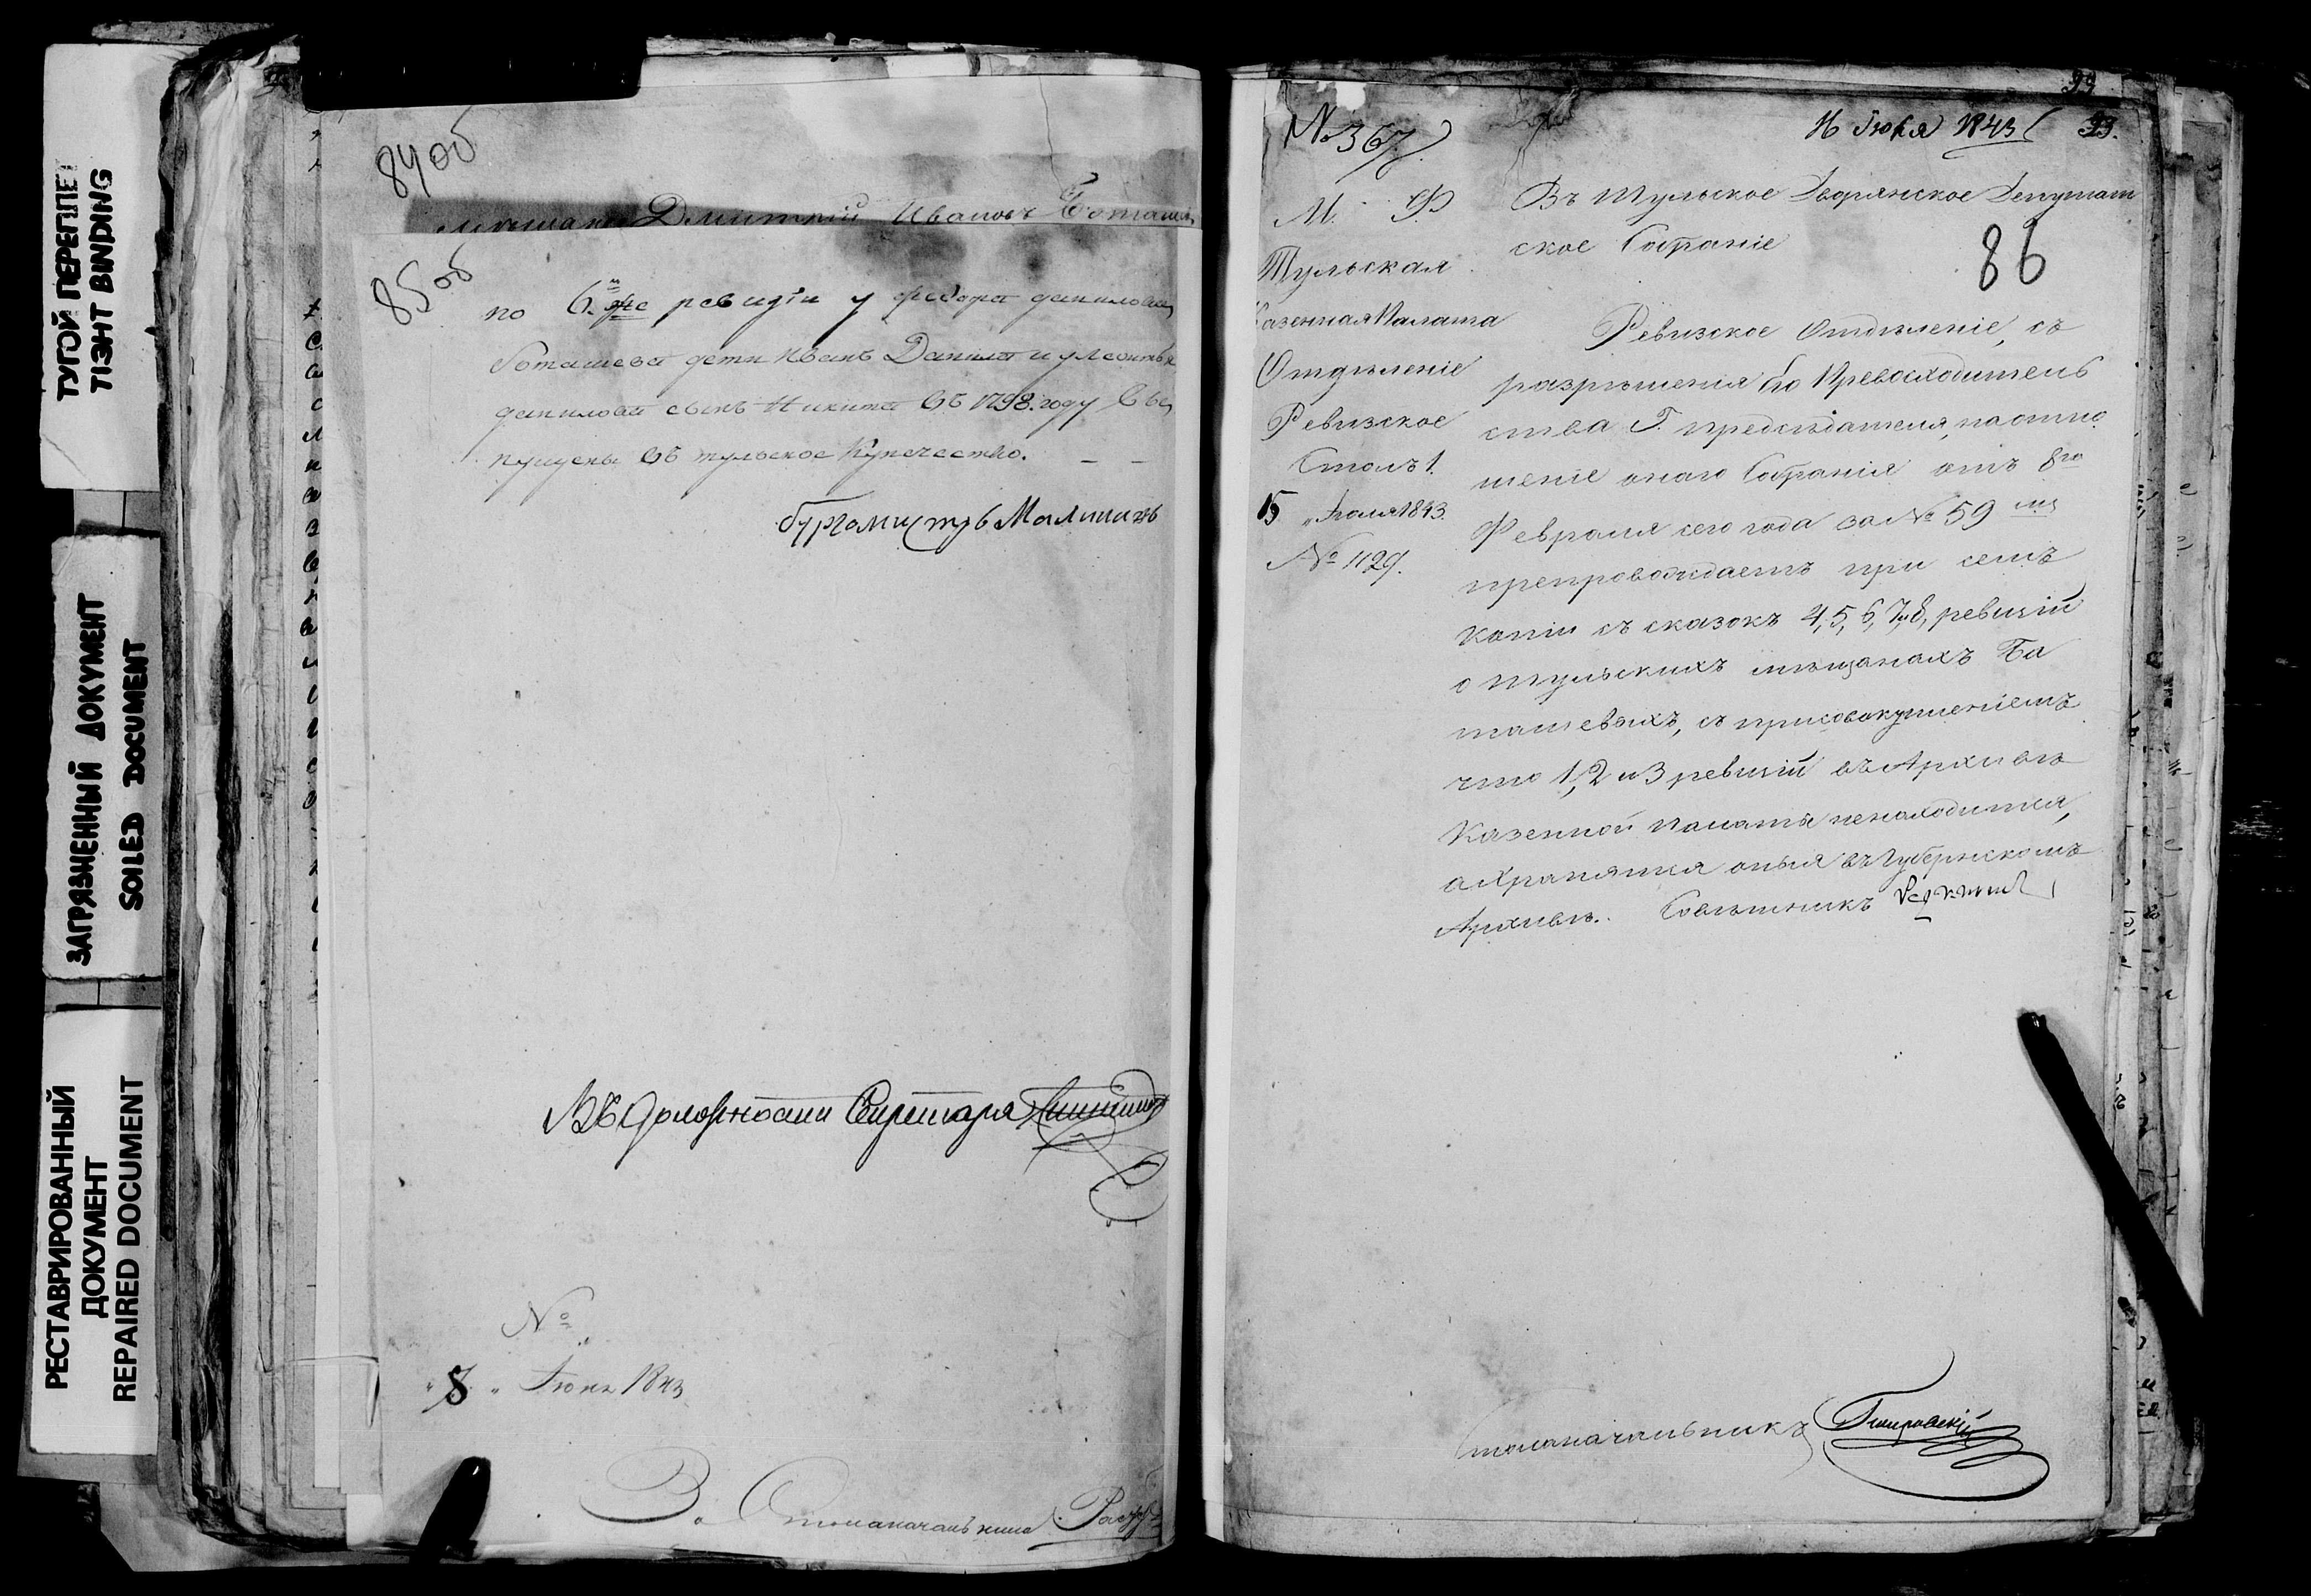 ТУГОЙ ПЕРЕПЛЕТ
TIGHT BINDING
ЗАГРЯЗНЕННЫЙ ДОКУМЕНТ
SOILED DOCUMENT
РЕСТАВРИРОВАННЫЙ
ДОКУМЕНТ
REPAIRED DOCUMENT
84 об
Дмитрій Ивановъ Боташев
85 об
по 6.й же ревизіи у федора данилова
боташева дети Иванъ Данила и у леонтья
данилова сынъ Никита въ 1798. году
пущены въ тульское Купечество.
бургомистръ Малининъ
Въ должности Секретаря
№
"8" Іюня 1843
За Столоначальника
99
№ 367
16 Іюля 1843
99.
М. Ф
Тульская
Казенная Палата
Отдѣленіе
Ревизское
Столъ 1.
15 "Іюля 1843.
№ 1129.
Въ Тульское Дворянское Депутат
ское Собраніе
86
Ревизское Отдѣленіе, съ
разрѣшенія Его Превосходитель
ства Г. Предсѣдателя, на отно
шеніе онаго Собранія отъ 8го
Февраля сего года за № 59
препровождаетъ при семъ
копіи съ сказокъ 4, 5, 6, 7 и 8, ревизій
о тульскихъ мѣщанахъ Ба
ташевыхъ, съ присовокупленіемъ
что 1, 2 и 3 ревизій въ Архивѣ
Казенной Палаты ненаходится,
а хранятся оныя въ Губернскомъ
Архивѣ. Совѣтникъ
Столоначальникъ